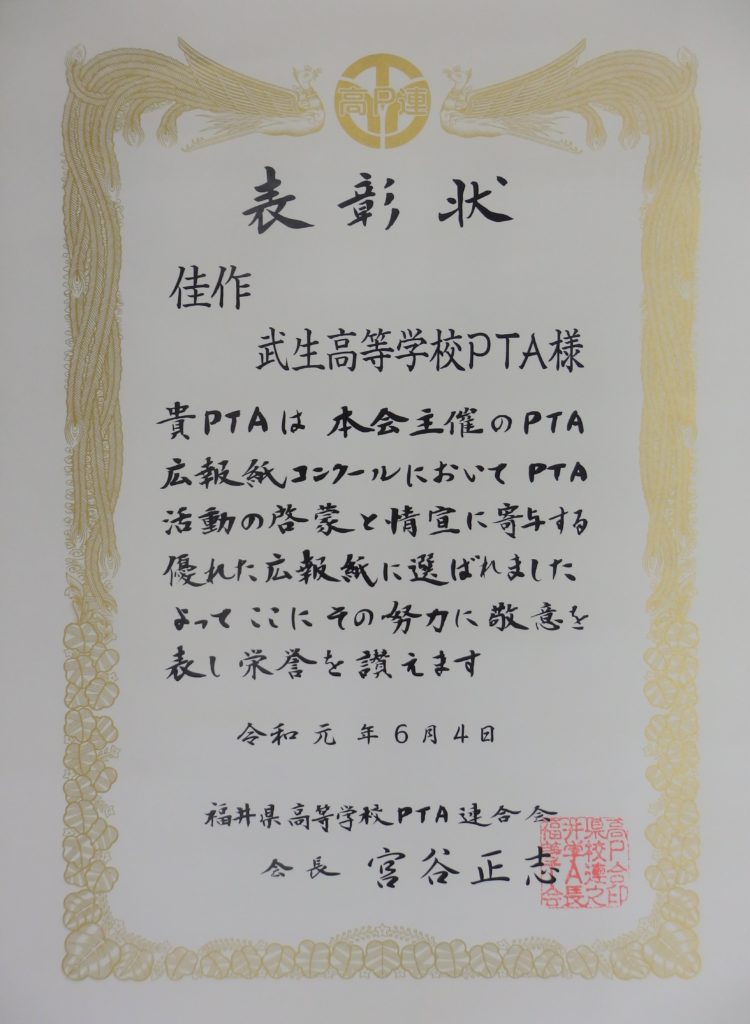 高P連
表彰状
佳作
武生高等学校PTA様
貴PTAは本会主催のPTA
広報紙コンクールにおいてPTA
活動の啓蒙と情宣に寄与する
優れた広報紙に選ばれました
よってここにその努力に敬意を
表し栄誉を讃えます
令和元年6月4日
福井県高等学校PTA連合会
会長 宮谷正志